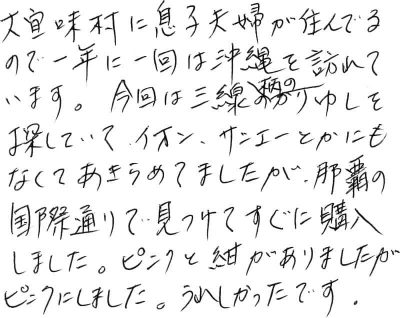 大宜味村に息子夫婦が住んでる
ので一年に一回は沖縄を訪れて
います。今回は三線柄のかりゆしを
探していて、イオン、サンエーとかにも
なくてあきらめてましたが、那覇の
国際通りで見つけてすぐに購入
しました。ピンクと紺がありましたが
ピンクにしました。うれしかったです。